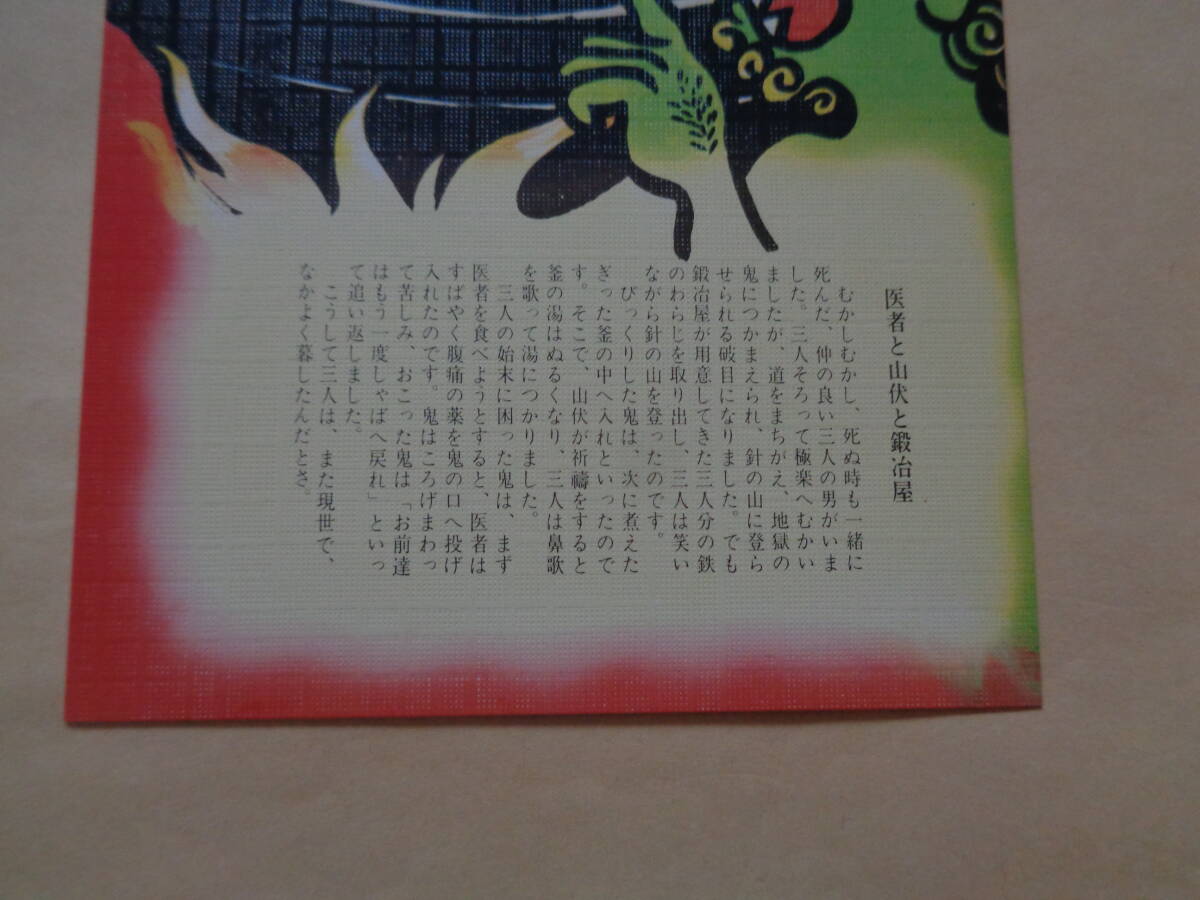 医者と山伏と鍛冶屋
むかしむかし、死ぬ時も一緒に
死んだ、仲の良い三人の男がいま
した。三人そろって極楽へむかい
ましたが、道をまちがえ、地獄の
鬼につかまえられ、針の山に登ら
せられる破目になりました。でも
鍛冶屋が用意してきた三人分の鉄
のわらじを取り出し、三人は笑い
ながら針の山を登ったのです。
びっくりした鬼は、次に煮えた
ぎった釜の中へ入れといったので
す。そこで、山伏が祈禱をすると
釜の湯はぬるくなり、三人は鼻歌
を歌って湯につかりました。
三人の始末に困った鬼は、まず
医者を食べようとすると、医者は
すばやく腹痛の薬を鬼の口へ投げ
入れたのです。鬼はころげまわっ
て苦しみ、おこった鬼は「お前達
はもう一度しゃばへ戻れ」といっ
て追い返しました。
こうして三人は、また現世で、
なかよく暮したんだとさ。